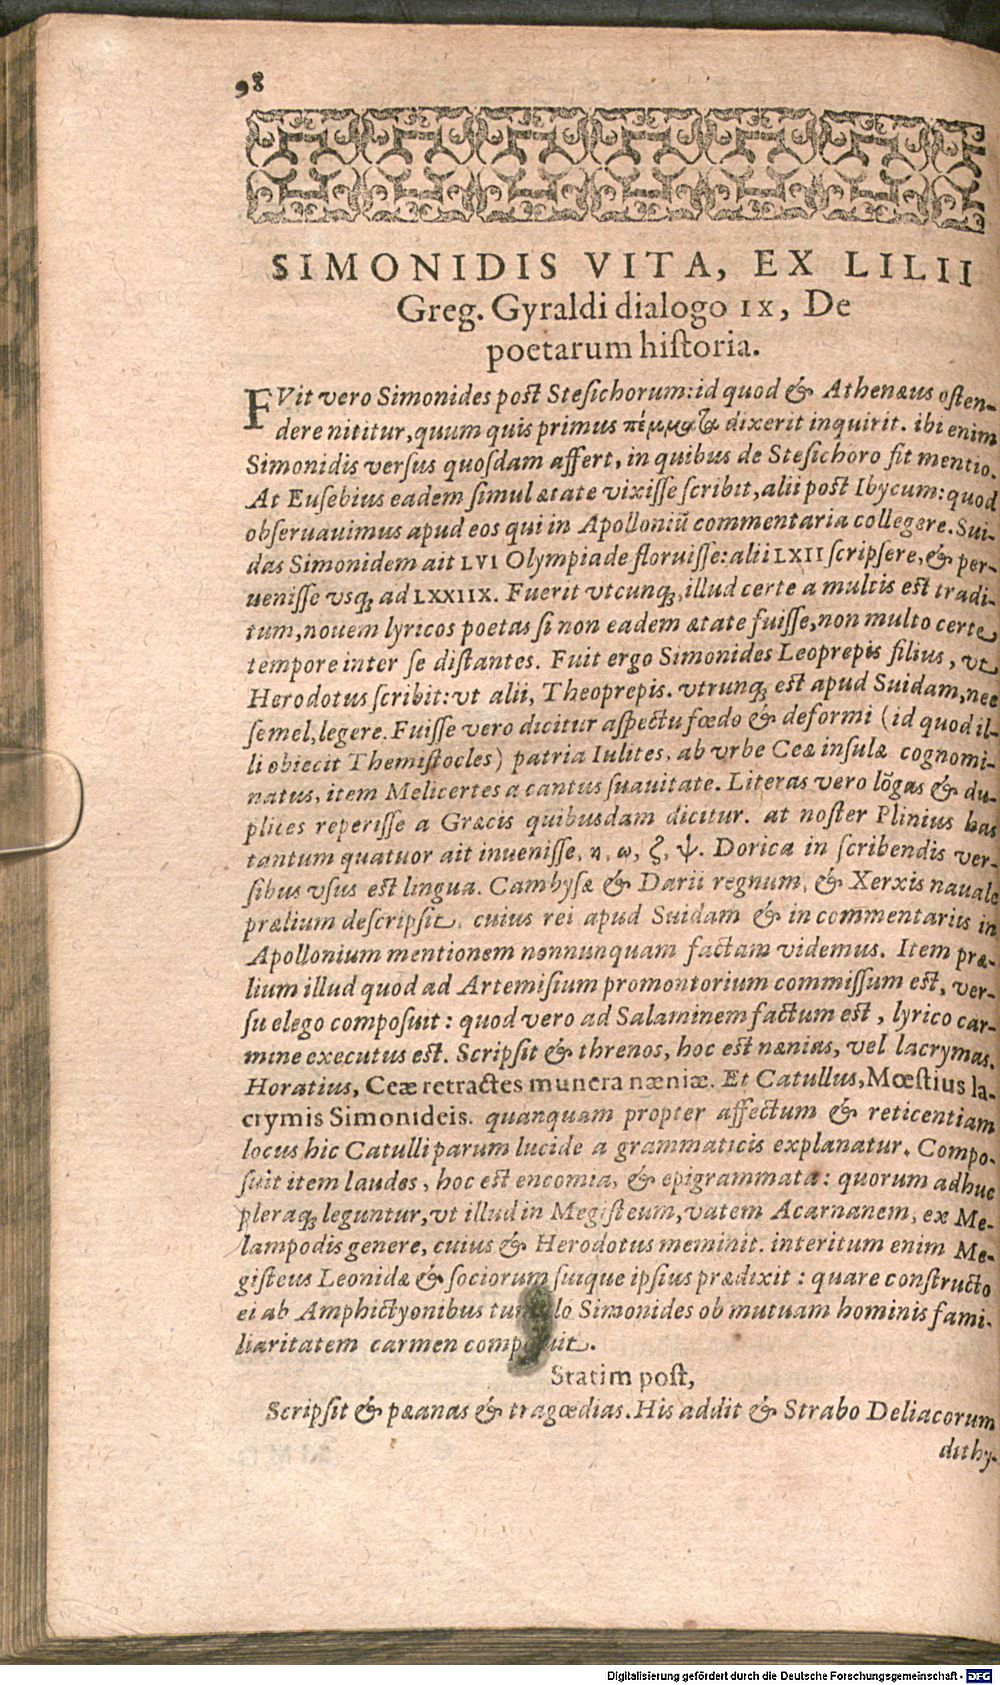 98
SIMONIDIS VITA, EX LILII
Greg. Gyraldi dialogo IX, De
poetarum historia.
FVit vero Simonides post Stesichorum: id quod & Athenæus osten-
dere nititur, quum quis primus πέμματα dixerit inquirit. ibi enim
Simonidis versus quosdam affert, in quibus de Stesichoro fit mentio.
At Eusebius eadem simul ætate vixisse scribit, alii post Ibycum: quod
obseruauimus apud eos qui in Apolloniũ commentaria collegere. Sui-
das Simonidem ait LVI Olympiade floruisse: alii LXII scripsere, & per-
uenisse vsq; ad LXXIIX. Fuerit vtcunq;, illud certe a multis est tradi-
tum, nouem lyricos poetas si non eadem ætate fuisse, non multo certe
tempore inter se distantes. Fuit ergo Simonides Leoprepis filius, vt
Herodotus scribit: vt alii, Theoprepis. vtrunq; est apud Suidam, nec
semel, legere. Fuisse vero dicitur aspectu fœdo & deformi (id quod il-
li obiecit Themistocles) patria Iulites, ab vrbe Ceæ insulæ cognomi-
natus, item Melicertes a cantus suauitate. Literas vero lõgas & du-
plices reperisse a Græcis quibusdam dicitur. at noster Plinius has
tantum quatuor ait inuenisse, η, ω, ζ, ψ. Dorica in scribendis ver-
sibus vsus est lingua. Cambysæ & Darii regnum, & Xerxis nauale
prælium descripsit, cuius rei apud Suidam & in commentariis in
Apollonium mentionem nonnunquam factam videmus. Item præ-
lium illud quod ad Artemisium promontorium commissum est, ver-
su elego composuit: quod vero ad Salaminem factum est, lyrico car-
mine executus est. Scripsit & threnos, hoc est nænias, vel lacrymas.
Horatius, Ceæ retractes munera næniæ. Et Catullus, Mœstius la-
crymis Simonideis. quanquam propter affectum & reticentiam
locus hic Catulli parum lucide a grammaticis explanatur. Compo-
suit item laudes, hoc est encomia, & epigrammata: quorum adhuc
pleraq; leguntur, vt illud in Megisteum, vatem Acarnanem, ex Me-
lampodis genere, cuius & Herodotus meminit. interitum enim Me-
gisteus Leonidæ & sociorum suique ipsius prædixit: quare constructo
ei ab Amphictyonibus tumulo Simonides ob mutuam hominis fami-
liaritatem carmen composuit.
Statim post,
Scripsit & pæanas & tragœdias. His addit & Strabo Deliacorum
dithy-
Digitalisierung gefördert durch die Deutsche Forschungsgemeinschaft - DFG